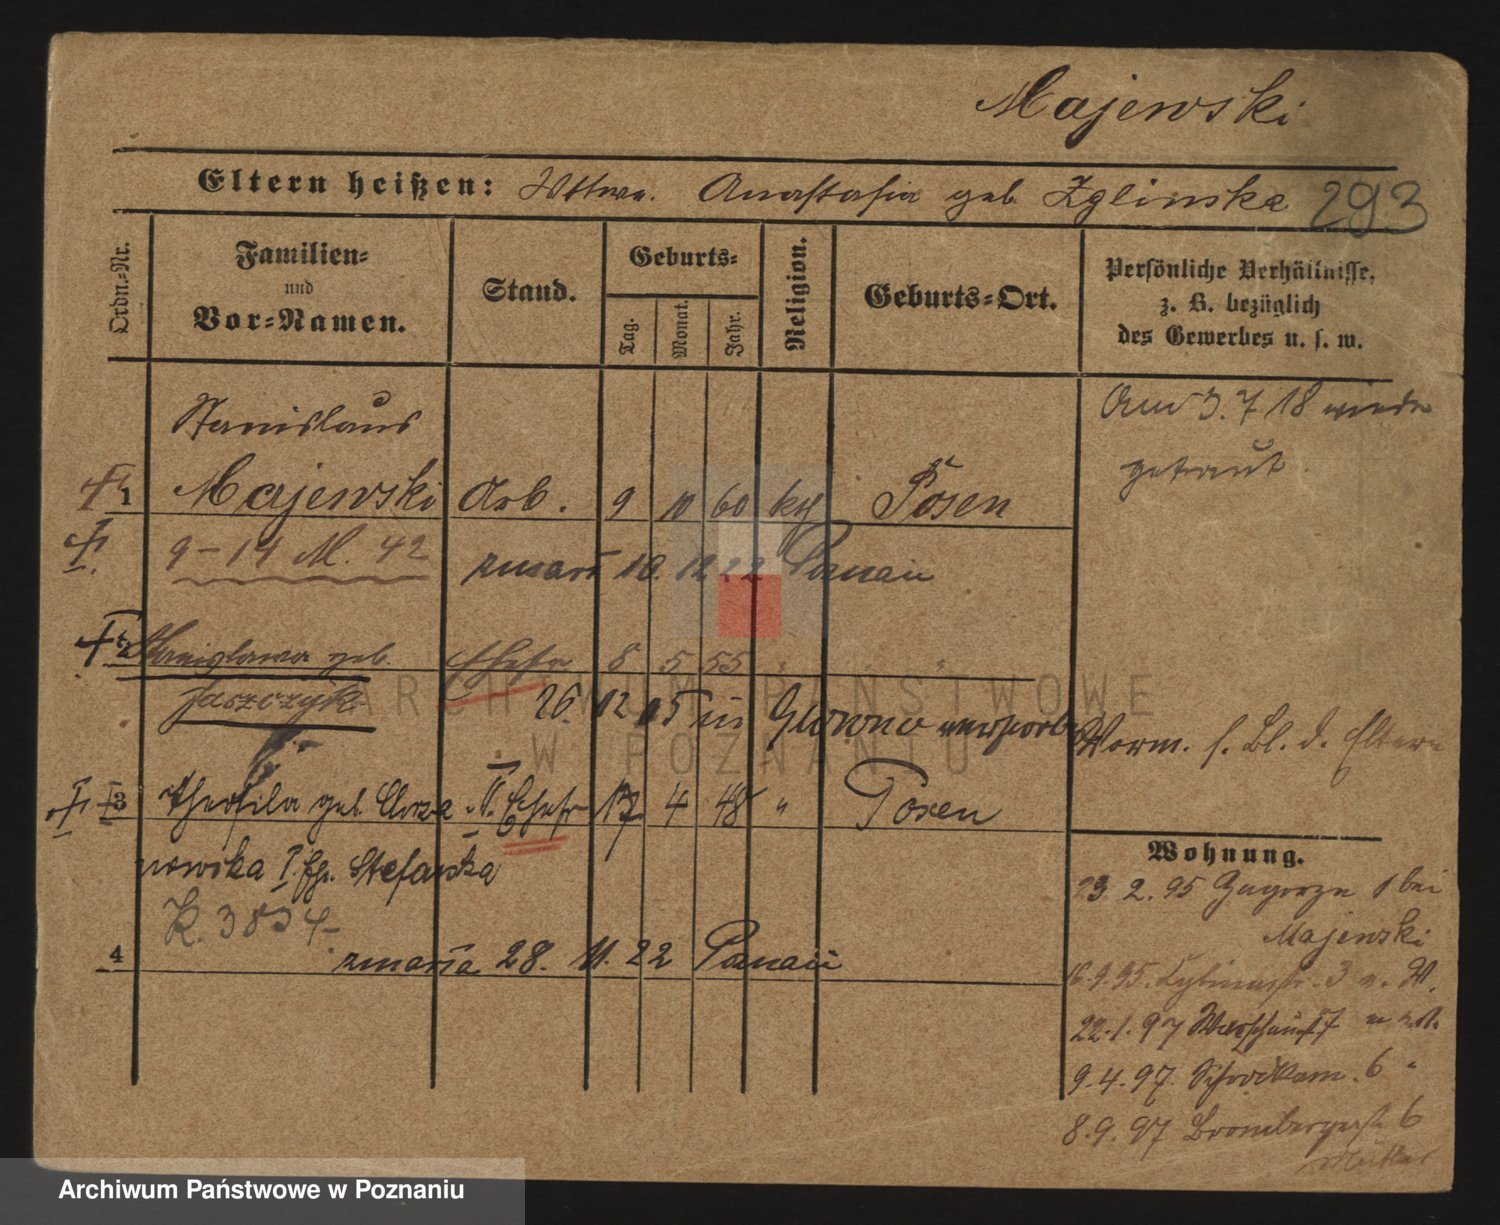 Majewski
Eltern heißen: Wttwe. Anastasia geb. Zglinska 293
Ordn.-Nr.
Familien-
und
Vor-Namen.
Stand.
Geburts-
Tag.
Monat.
Jahr.
Religion.
Geburts-Ort.
Persönliche Verhältnisse,
z. B. bezüglich
des Gewerbes u. s. w.
Am 3.7.18 wieder
getraut.
Stanislaus
1 Majewski Arb. 9 10 60 kth Posen
9-14 M. 42
zmarł 10. 12 22 Poznań
2 Stanislawa geb. Ehefr 8 5 55 " "
Jaszczyk
26. 12 15 in Glowno verstorb.
Verm. s. Bl. d. Eltern
3 Theofila geb. Chrza II. Ehefr 17 4 48 " Posen
nowska I. Ehe. Stefanska
K. 3834.
4 zmarła 28. 11. 22 Poznań
Wohnung.
23 2. 95 Zagorze 1 bei
Majewski
16.9.95. 3 W.
22.1.97
9.4.97. Schrodkam. 6 "
8.9.97 Brombergerstr 6
ARCHIWUM PAŃSTWOWE
W POZNANIU
Archiwum Państwowe w Poznaniu